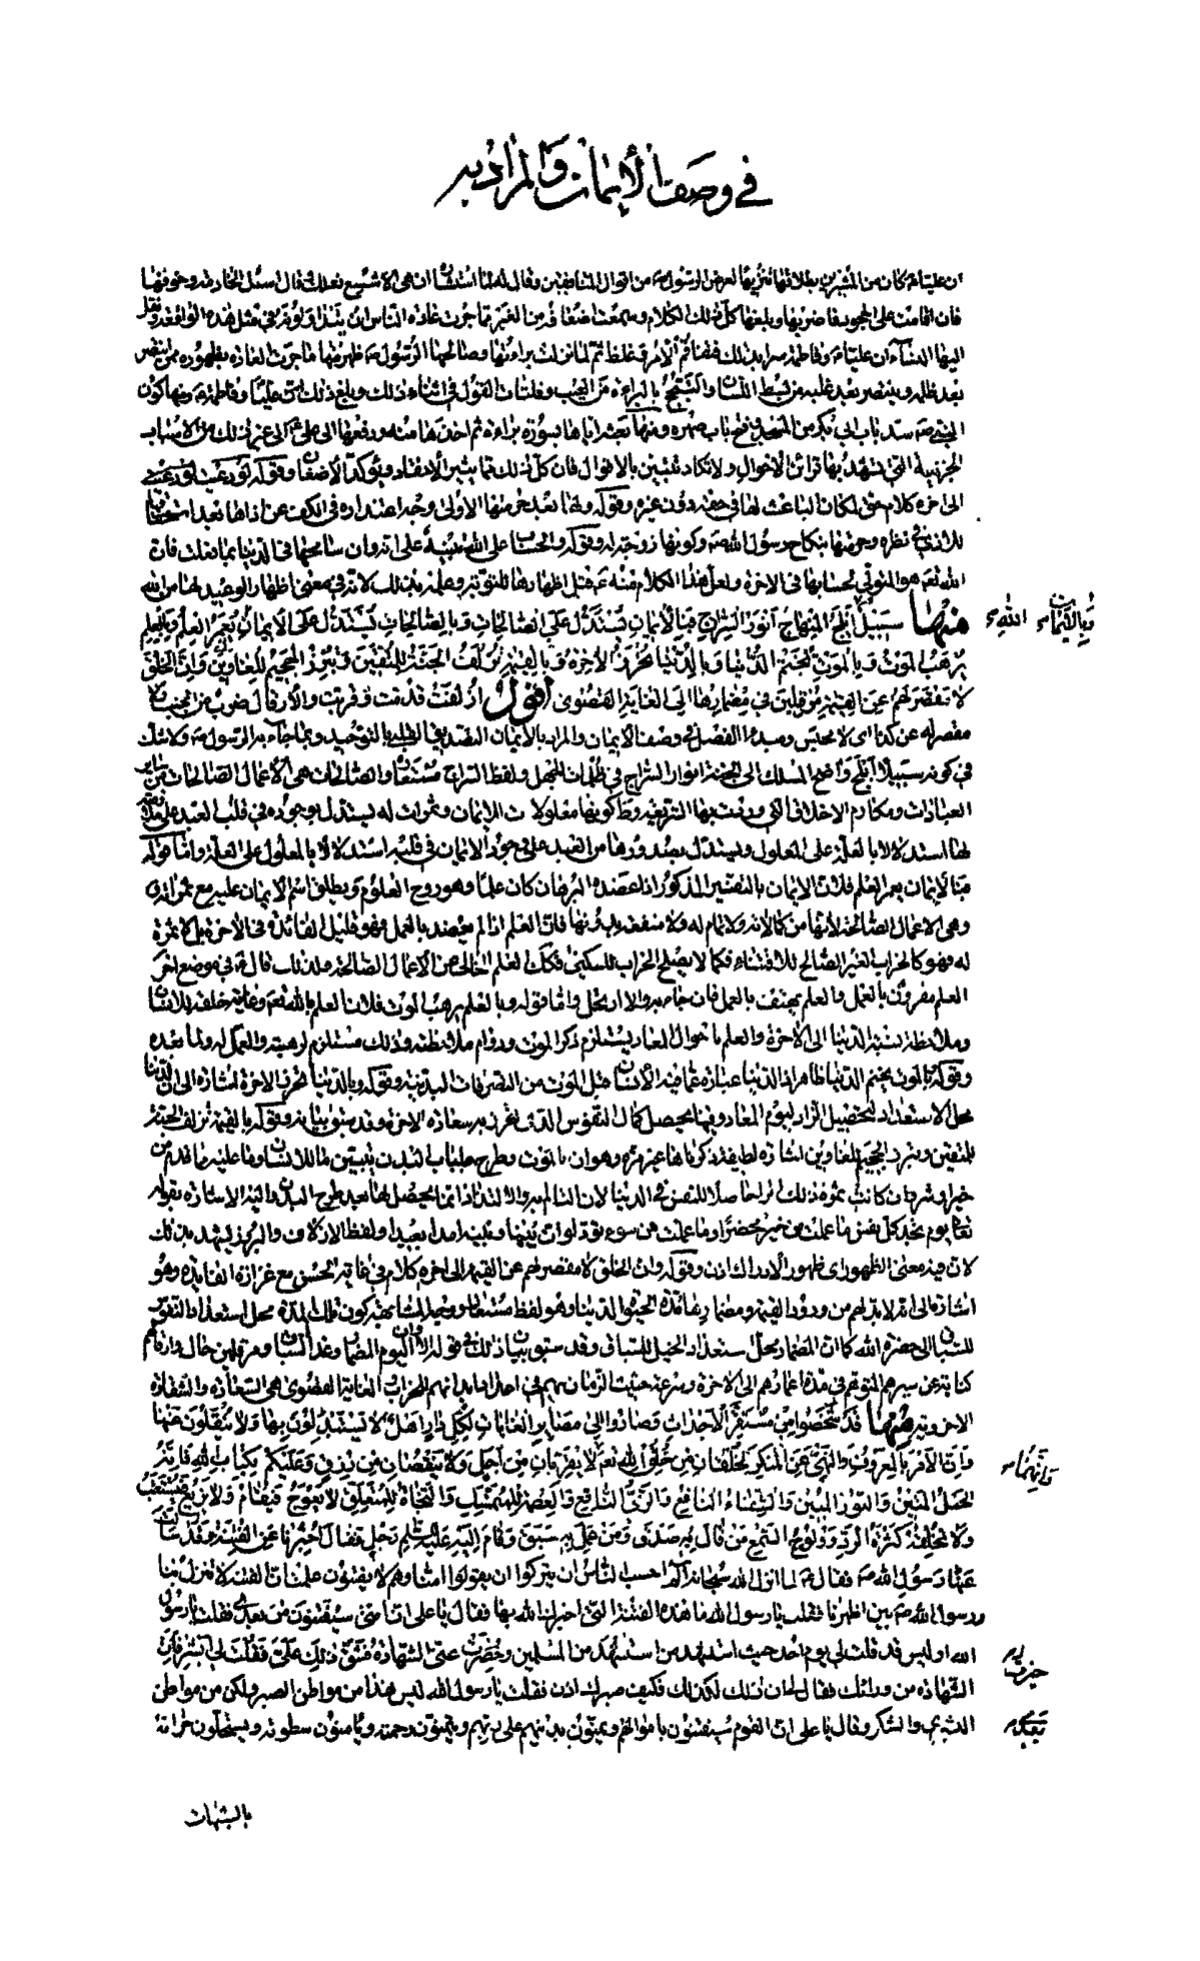 في وصف الأيمان والمراد به
ان عليا ء كان من المشيرين بطلاقها تنزيها لعرض الرسول ص من اقوال المنافقين وقال له لما استشاره ان هي الا شسع نعلك وقال اسئل الخادمة وخوفها
فان اقامت على الجحود فاضربها وبلغها كل ذلك الكلام وسمعت اضعافه من الغير مما جرت عادة الناس ان يتداولوه في مثل هذه الواقعة ونقل
اليها النساء ان عليا ء وفاطمة سرا بذلك فتفاقم الأمر وغلظ ثم لما نزلت براءتها وصالحها الرسول ص ظهر منها ما جرت العادة بظهوره ممن انتصر
بعد ظلمه وينتصر بعد غلبه من بسط اللسان والتبجح بالبراءة من العيب وفلتات القول في اثناء ذلك وبلغ ذلك عليا وفاطمة ء ومنها كون
النبي ص سد باب ابي بكر من المسجد وفتح باب صهره ومنها بعثه اياها بسورة براءة ثم اخذها منه ودفعها الى علي ء الى غير ذلك من الاسباب
الجزئية التي تشهد بها قرائن الاحوال ولا تكاد تتبين بالاقوال فان كل ذلك مما يثير الأحقاد ويؤكد الأضغان وقوله لو دعيت لتنال من غيري
الى اخره كلام حق لمكان الباعث لها في حقه دون غيره وقوله ولها بعد حرمتها الأولى وجه اعتذاره في الكف عن اذاها بعد استحقاقها
للأذى في نظره وحرمتها بنكاح رسول الله ص وكونها زوجة له وقوله والحساب على الله تنبيه على انه وان سامحها في الدنيا بما فعلت فان
الله تعم هو المتولي لحسابها في الاخرة ولعل هذا الكلام منه ء قبل اظهارها للتوبة وعلمه بذلك لانه في معنى اظهار الوعيد لها من الله
منها سبيل ابلج المنهاج انور السراج فبالأيمان يستدل على الصالحات وبالصالحات يستدل على الأيمان وبالأيمان يعمر العلم وبالعلم
يرهب الموت وبالموت تختم الدنيا وبالدنيا تحرز الأخرة وبالقيمة تزلف الجنة للمتقين وتبرز الجحيم للغاوين وان الخلق
لا مقصر لهم عن القيمة مرقلين في مضمارها الى الغاية القصوى اقول ازلفت قدمت وقربت والأرقال ضرب من الخبب ولا
مقصر له عن كذا اي لا محبس ومبدء الفصل في وصف الايمان والمراد بالأيمان التصديق القلبي بالتوحيد وبما جاء به الرسول ص ولا شك
في كونه سبيلا ابلج واضح المسلك الى الجنة انور السراج في ظلمات الجهل ولفظ السراج مستعار والصالحات هي الأعمال الصالحات من ساير
العبادات ومكارم الاخلاق التي وردت بها الشريعة وظ كونها معلولات للايمان وثمرات له يستدل بوجوده في قلب العبد على
لها استدلالا بالعلة على المعلول ويستدل بصدورها من العبد على وجود الايمان في قلبه استدلالا بالمعلول على العلة واما قوله
وبالأيمان يعمر العلم فلان الايمان بالتفسير المذكور اذا عضده البرهان كان علما وهو روح العلوم ويطلق اسم الأيمان عليه مع ثمراته
وهي الاعمال الصالحة لأنها من كمالاته ولا تمام له ولا منفعة بدونها فان العلم اذا لم يعضد بالعمل فهو قليل الفائدة في الأخرة بل لا ثمرة
له فهو كالخراب الغير الصالح للاقتناء فكما لا يصلح الخراب للسكنى فكذلك العلم الخالي من الأعمال الصالحة ولذلك قال ء في موضع اخر
العلم مقرون بالعمل والعلم يهتف بالعمل فان اجابه والا ارتحل واما قوله وبالعلم يرهب الموت فلان العلم بالله تعم وغاية خلقه للانسان
وملاحظة نسبة الدنيا الى الأخرة والعلم باحوال المعاد يستلزم ذكر الموت ودوام ملاحظته وذلك مستلزم لرهبته والعمل له ولما بعده
وقوله وبالموت تختم الدنيا ظاهر اذ الدنيا عبارة عما فيه الأنسان قبل الموت من التصرفات البدنية وقوله وبالدنيا تحرز الاخرة اشارة الى ان الدنيا
محل الاستعداد لتحصيل الزاد ليوم المعاد وفيها يحصل كمال النفوس الذي تحرز به سعادة الاخرة وقد سبق بيانه وقوله وبالقيمة تزلف الجنة
للمتقين وتبرز الجحيم للغاوين اشارة لطيفة ذكرناها غير مرة وهو ان بالموت وطرح جلباب البدن يتبين ما للانسان وما عليه مما قدم من
خير او شر وان كانت ثمرة ذلك امرا حاصلا للنفس في الدنيا لان التألم به والالتذاذ انما يحصل لها بعد طرح البدن واليه الاشارة بقوله
تعا يوم تجد كل نفس ما عملت من خير محضرا وما عملت من سوء تود لو ان بينها وبينه امدا بعيدا ولفظ الازلاف والبروز يشهد بذلك
لان فيه معنى الظهور اي ظهور الأدراك اذن وقوله وان الخلق لا مقصر لهم عن القيمة الى اخره كلام في غاية الحسن مع غزارة الفايدة وهو
اشارة الى انه لابد لهم من ورود القيمة ومضمارها مدة الحيوة الدنيا وهو لفظ مستعار ووجه المشابهة كون تلك المدة محل استعداد النفوس
للسباق الى حضرة الله كما ان المضمار محل استعداد الخيل للسباق وقد سبق بيان ذلك في قوله الا وان اليوم المضمار وغدا السباق ومرقلين حال وارقالهم
كناية عن سيرهم المتوهم في مدة اعمارهم الى الاخرة وسرعة حثيث الزمان بهم في اعداد ابدانهم للخراب والغاية القصوى هي السعادة والشقاوة
الاخروية ومنها قد شخصوا من مستقر الأجداث وصاروا الى مصاير الغايات لكل دار اهلها لا يستبدلون بها ولا ينقلون عنها
وان الأمر بالمعروف والنهي عن المنكر لخلقان من خلق الله تعم وانهما لا يقربان من اجل ولا ينقصان من رزق وعليكم بكتاب الله فانه
الحبل المتين والنور المبين والشفاء النافع والري الناقع والعصمة للمتمسك والنجاة للمتعلق لا يعوج فيقام ولا يزيغ فيستعتب
ولا تخلقه كثرة الرد وولوج السمع من قال به صدق ومن عمل به سبق وقام اليه عليه السلم رجل فقال اخبرنا عن الفتنة وقد سألت
عنها رسول الله ص فقال ء لما انزل الله سبحانه الم احسب الناس ان يتركوا ان يقولوا امنا وهم لا يفتنون علمت ان الفتنة لا تنزل بنا
ورسول الله ص بين اظهرنا فقلت يا رسول الله ما هذه الفتنة التي اخبرك الله بها فقال يا علي ان امتي سيفتنون من بعدي فقلت يا رسول
الله اوليس قد قلت لي يوم احد حيث استشهد من استشهد من المسلمين وحيزت عني الشهادة فشق ذلك علي فقلت لي ابشر فان
الشهادة من ورائك فقال لي ان ذلك لكذلك فكيف صبرك اذن فقلت يا رسول الله ليس هذا من مواطن الصبر ولكن من مواطن
البشرى والشكر وقال يا علي ان القوم سيفتنون باموالهم ويمنون بدينهم على ربهم ويتمنون رحمته ويأمنون سطوته ويستحلون حرامه
بالشبهات